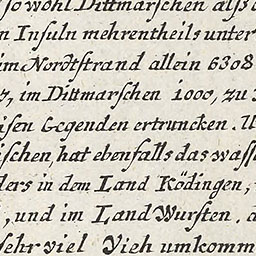 so wohl Dittmarschen alß
n Insuln mehrentheils unter
im Nordtstrand allein 6308
, im Dittmarschen 1000, zu
isen Gegenden ertruncken.
ischen, hat ebenfalls das wass
ders in dem Land Ködingen,
, und im Land Wursten.
sehr viel Vieh umkomm